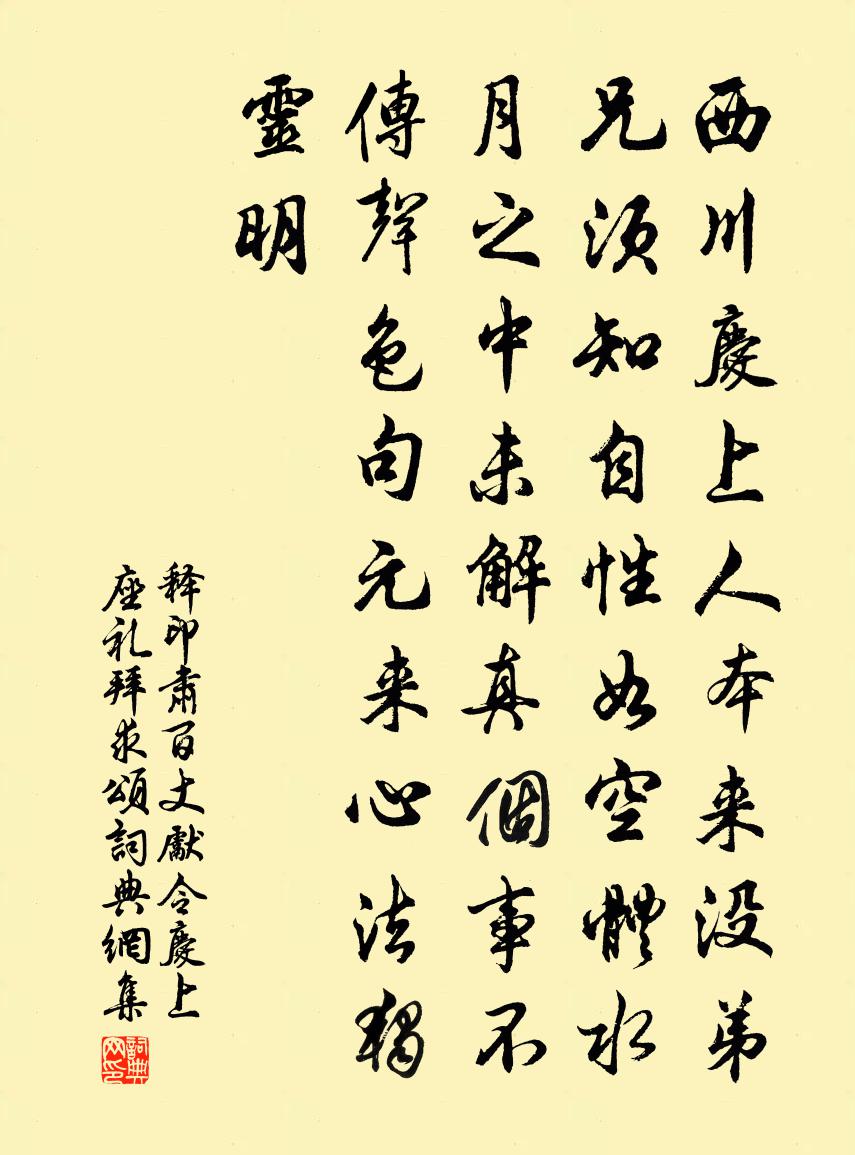 西川慶上人本来没弟
兄须知自性如空體水
月之中未解真個事不
傳聲色句元来心法独
靈明
释印肃百丈獻令慶上
座礼拜求頌詞典網集
詞典网印